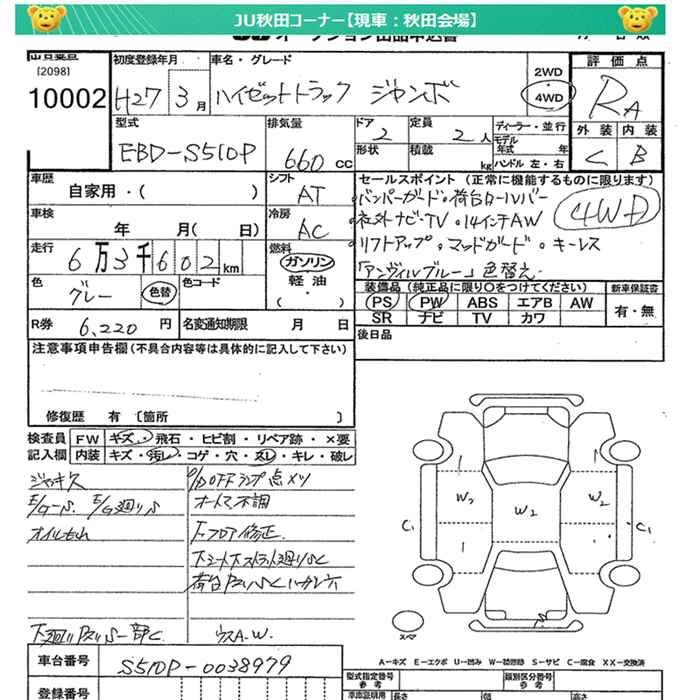 JU秋田コーナー【現車：秋田会場】
[2098]
10002
初度登録年月
H27 3月
車名・グレード
ハイゼットトラック ジャンボ
2WD
・
4WD
評価点
RA
外装 内装
C B
型式
EBD-S510P
排気量
660 cc
ドア
2
形状
定員
2人
積載
kg
ディーラー・並行
モデル
年式 年
ハンドル 左・右
車歴
自家用・( )
シフト
AT
車検
年 月( 日)
冷房
AC
走行
6万3千602km
燃料
ガソリン
軽油
( ・ )
色
グレー
色替
色コード
R券
6,220円
名変通知期限 月 日
セールスポイント (正常に機能するものに限ります)
・バンパーガード・荷台ロールバー
・社外ナビ・TV ・14インチAW
・リフトアップ・マッドガード・キーレス
「アンヴィルブルー」色替え
4WD
装備品 (純正品に限り○をつけてください)
PS PW ABS エアB AW
SR ナビ TV カワ
新車保証書
有・無
後日品
注意事項申告欄 (不具合内容等は具体的に記入して下さい)
修復歴 有 [箇所 ]
検査員
記入欄
FW キズ・飛石・ヒビ割・リペア跡・×要
内装 キズ・汚れ・コゲ・穴・スレ・キレ・破レ
ジャッキ欠
オイルもれ
オートマ不調
下フロア修正
W2
W2
W2
C1
C1
スペア
車台番号
S510P-0038979
登録番号
A-キズ E-エクボ U-凹み W-補修跡 S-サビ C-腐食 XX-交換済
型式指定番号
参考
類別区分番号
参考